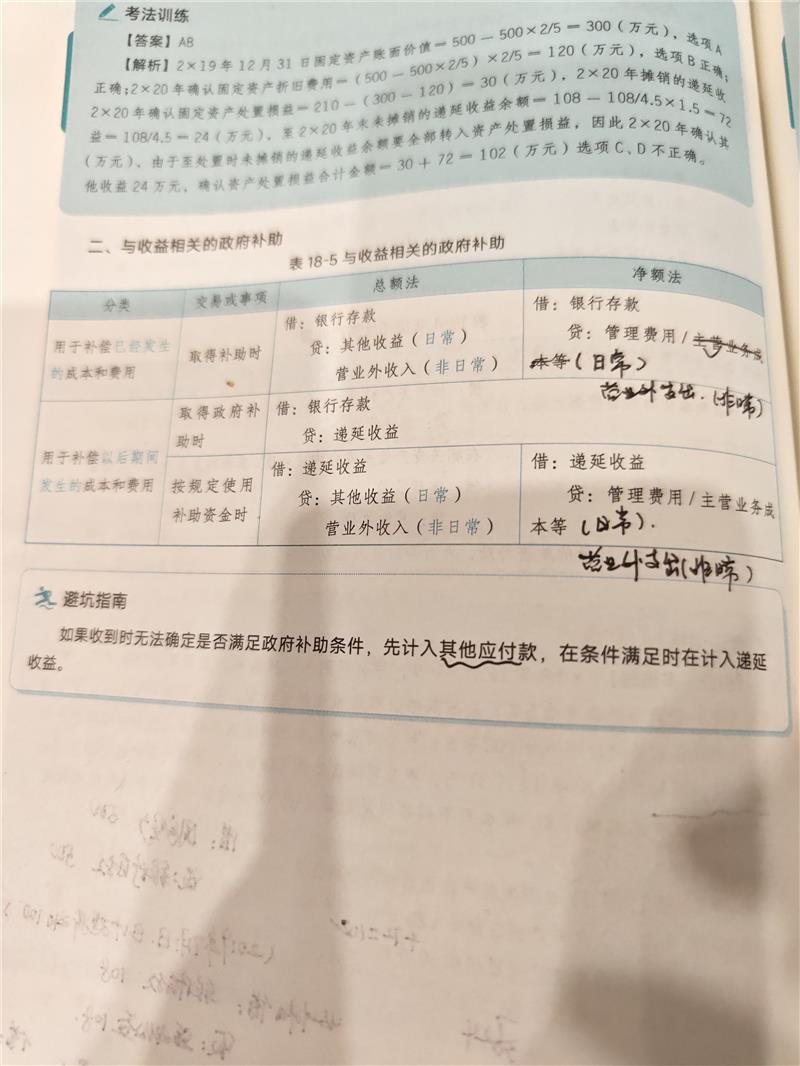 考法训练
【答案】AB
【解析】2×19年12月31日固定资产账面价值=500-500×2/5=300(万元),选项A
正确;2×20年确认固定资产折旧费用=(500-500×2/5)×2/5=120(万元),选项B正确;
2×20年确认固定资产处置损益=210-(300-120)=30(万元),2×20年摊销的递延收
益=108/4.5=24(万元),至2×20年末未摊销的递延收益余额=108-108/4.5×1.5=72
(万元),由于至处置时未摊销的递延收益余额要全部转入资产处置损益,因此2×20年确认其
他收益24万元,确认资产处置损益合计金额=30+72=102(万元)选项C、D不正确。
二、与收益相关的政府补助
表18-5 与收益相关的政府补助
分类 交易或事项 总额法 净额法
用于补偿已经发生
的成本和费用
取得补助时
借:银行存款
贷:其他收益(日常)
营业外收入(非日常)
借:银行存款
贷:管理费用/主营业务成
本等(日常)
营业外支出.(非常)
用于补偿以后期间
发生的成本和费用
取得政府补
助时
借:银行存款
贷:递延收益
按规定使用
补助资金时
借:递延收益
贷:其他收益(日常)
营业外收入(非日常)
借:递延收益
贷:管理费用/主营业务成
本等(日常).
营业外支出(非常)
避坑指南
如果收到时无法确定是否满足政府补助条件,先计入其他应付款,在条件满足时在计入递延
收益。